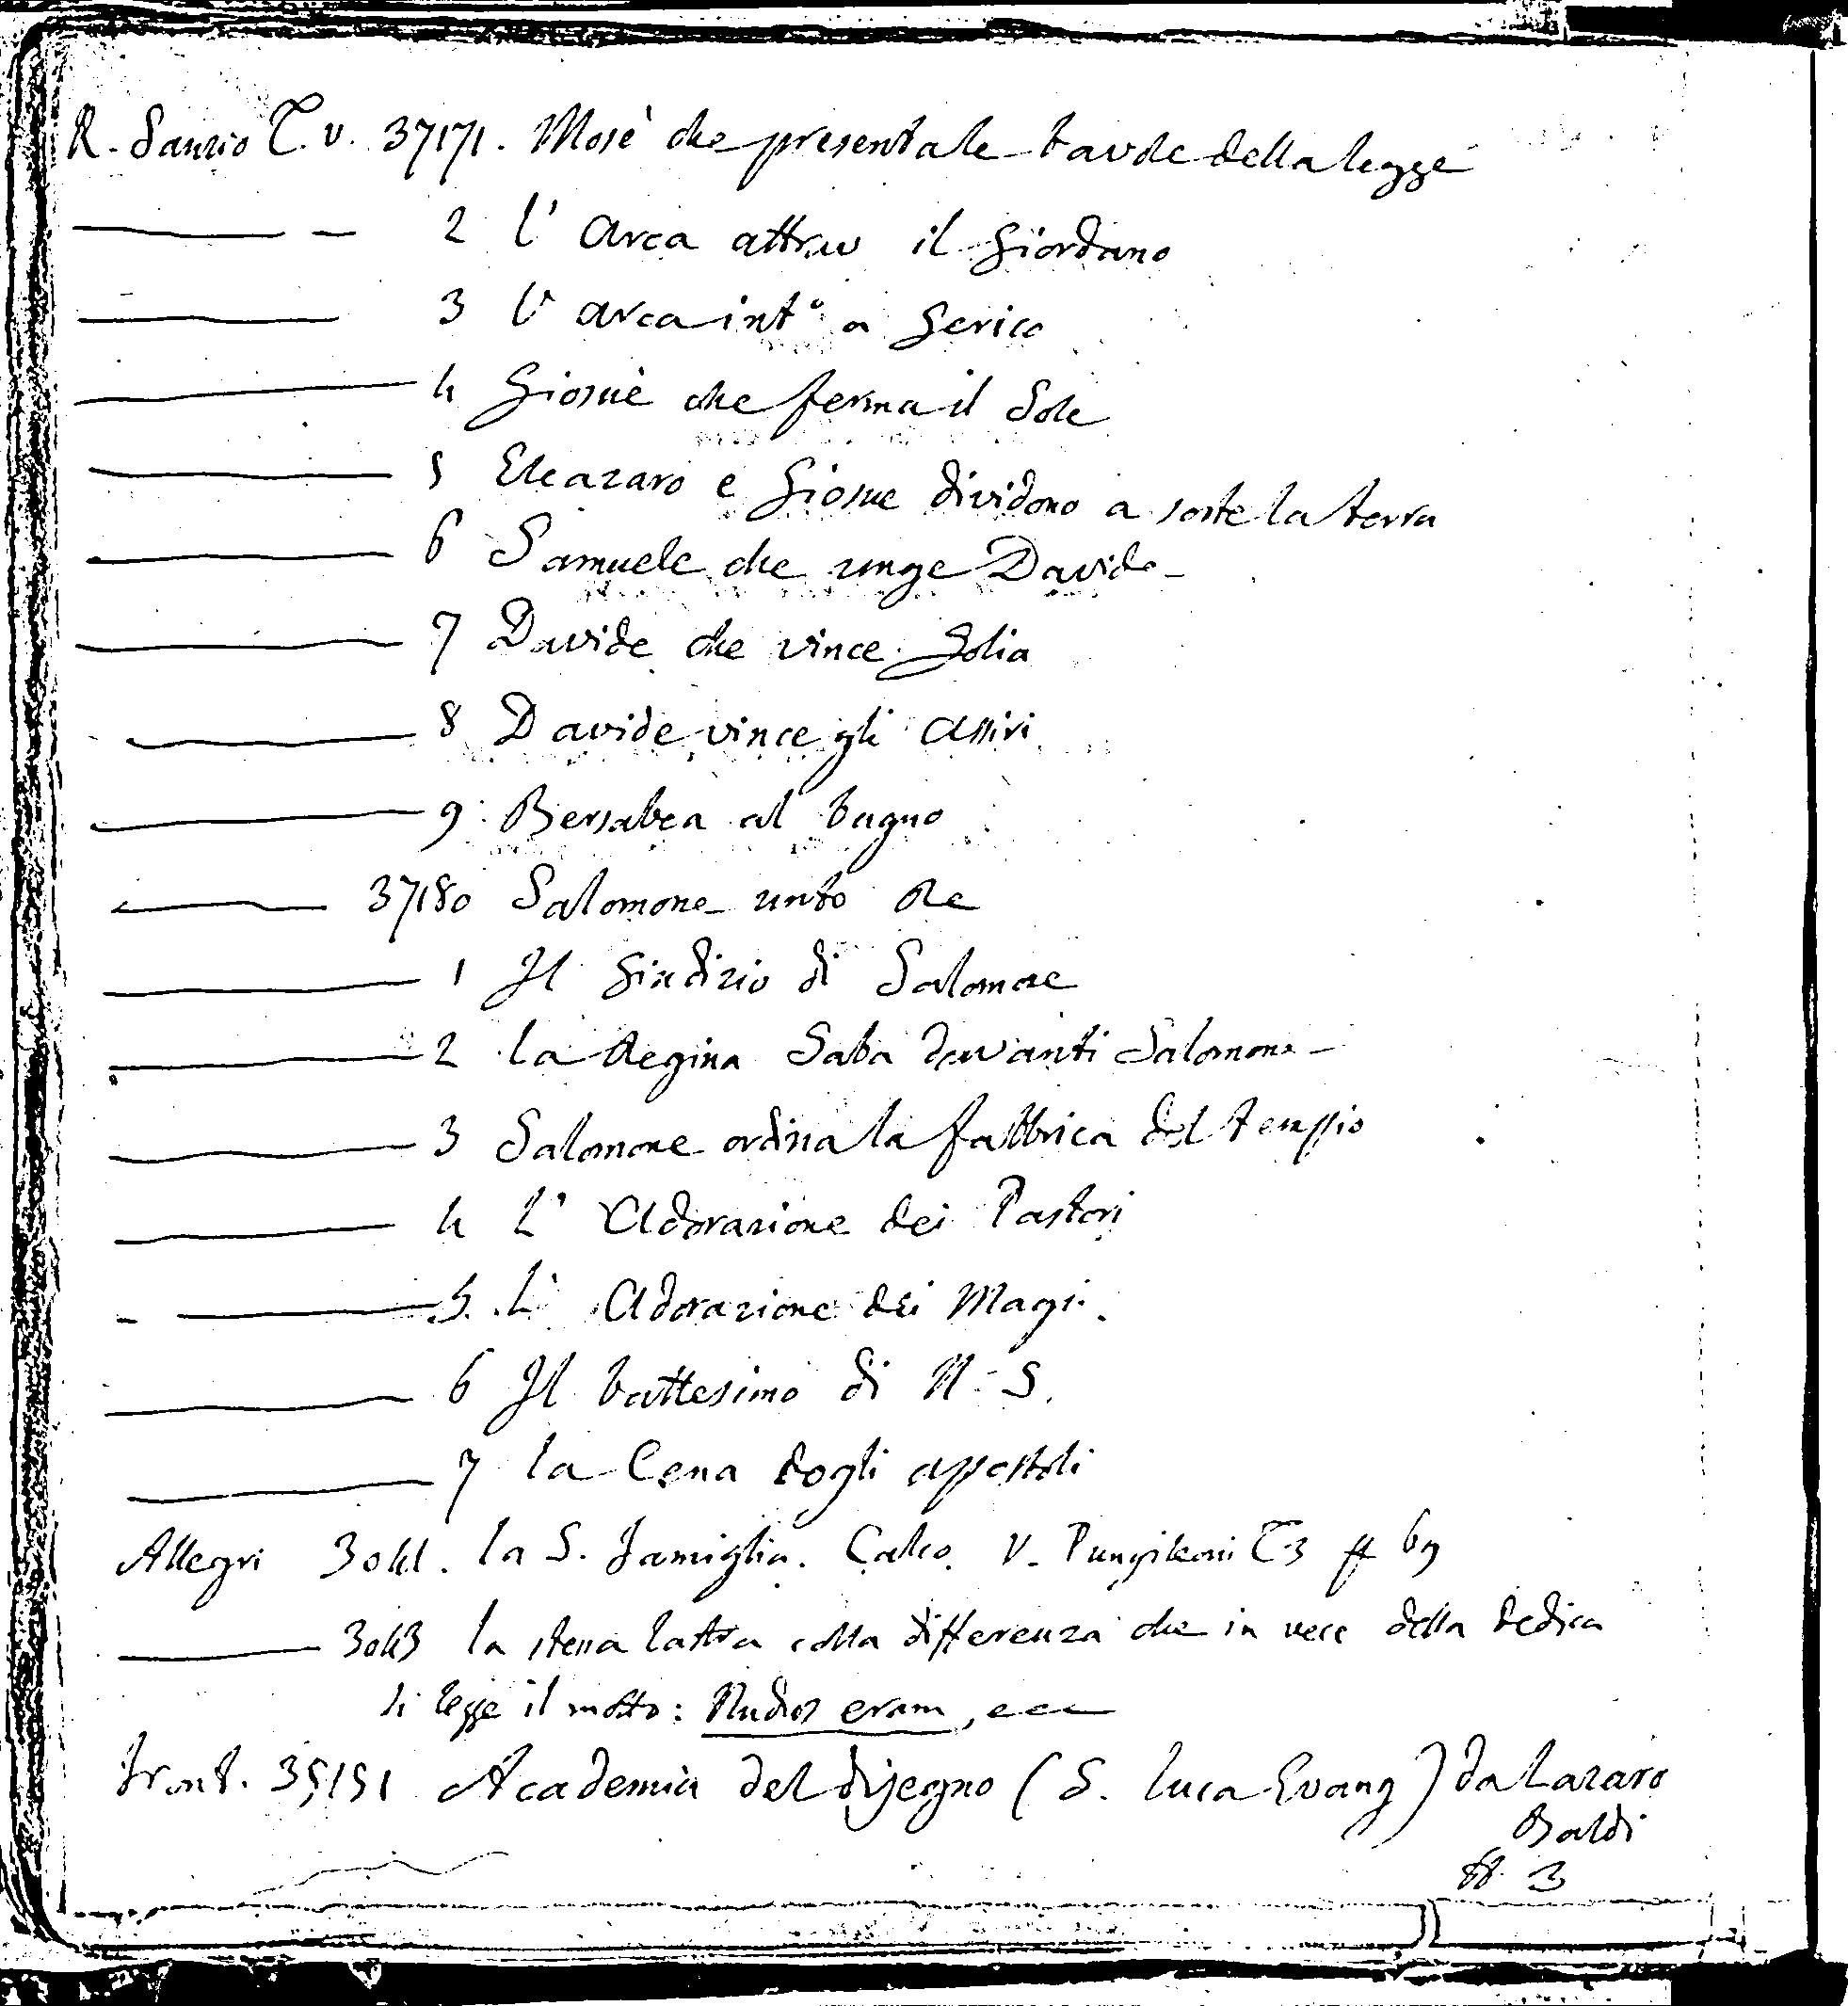 R. Sanzio T. V. 37171. Mosè che presenta le tavole della legge
——— — 2 l' Arca attrav il Giordano
——— 3 l' arca int° a Gerico
——— 4 Giosuè che ferma il Sole
——— 5 Eleazaro e Giosue dividono a sorte la terra
——— 6 Samuele che unge Davide
——— 7 Davide che vince Golia
——— 8 Davide vince gli Assiri
——— 9 Bersabea al bagno
——— 37180 Salomone unto Re
——— 1 Il Giudizio di Salomone
——— 2 la Regina Saba davanti Salomone
——— 3 Salomone ordina la fabbrica del tempio
——— 4 L' Adorazione dei Pastori
- ——— 5. L' Adorazione dei Magi.
——— 6 Il battesimo di N. S.
——— 7 la Cena degli appostoli
Allegri 3041. la S. Famiglia. Calco. V. Pungileoni T. 3 ff 69
——— 3043 la stessa lastra colla differenza che in vece della dedica
si legge il motto: Nudus eram, ecc
Front. 35151 Academia del disegno (S. Luca Evang) da Lazaro
Baldi
ff. 3